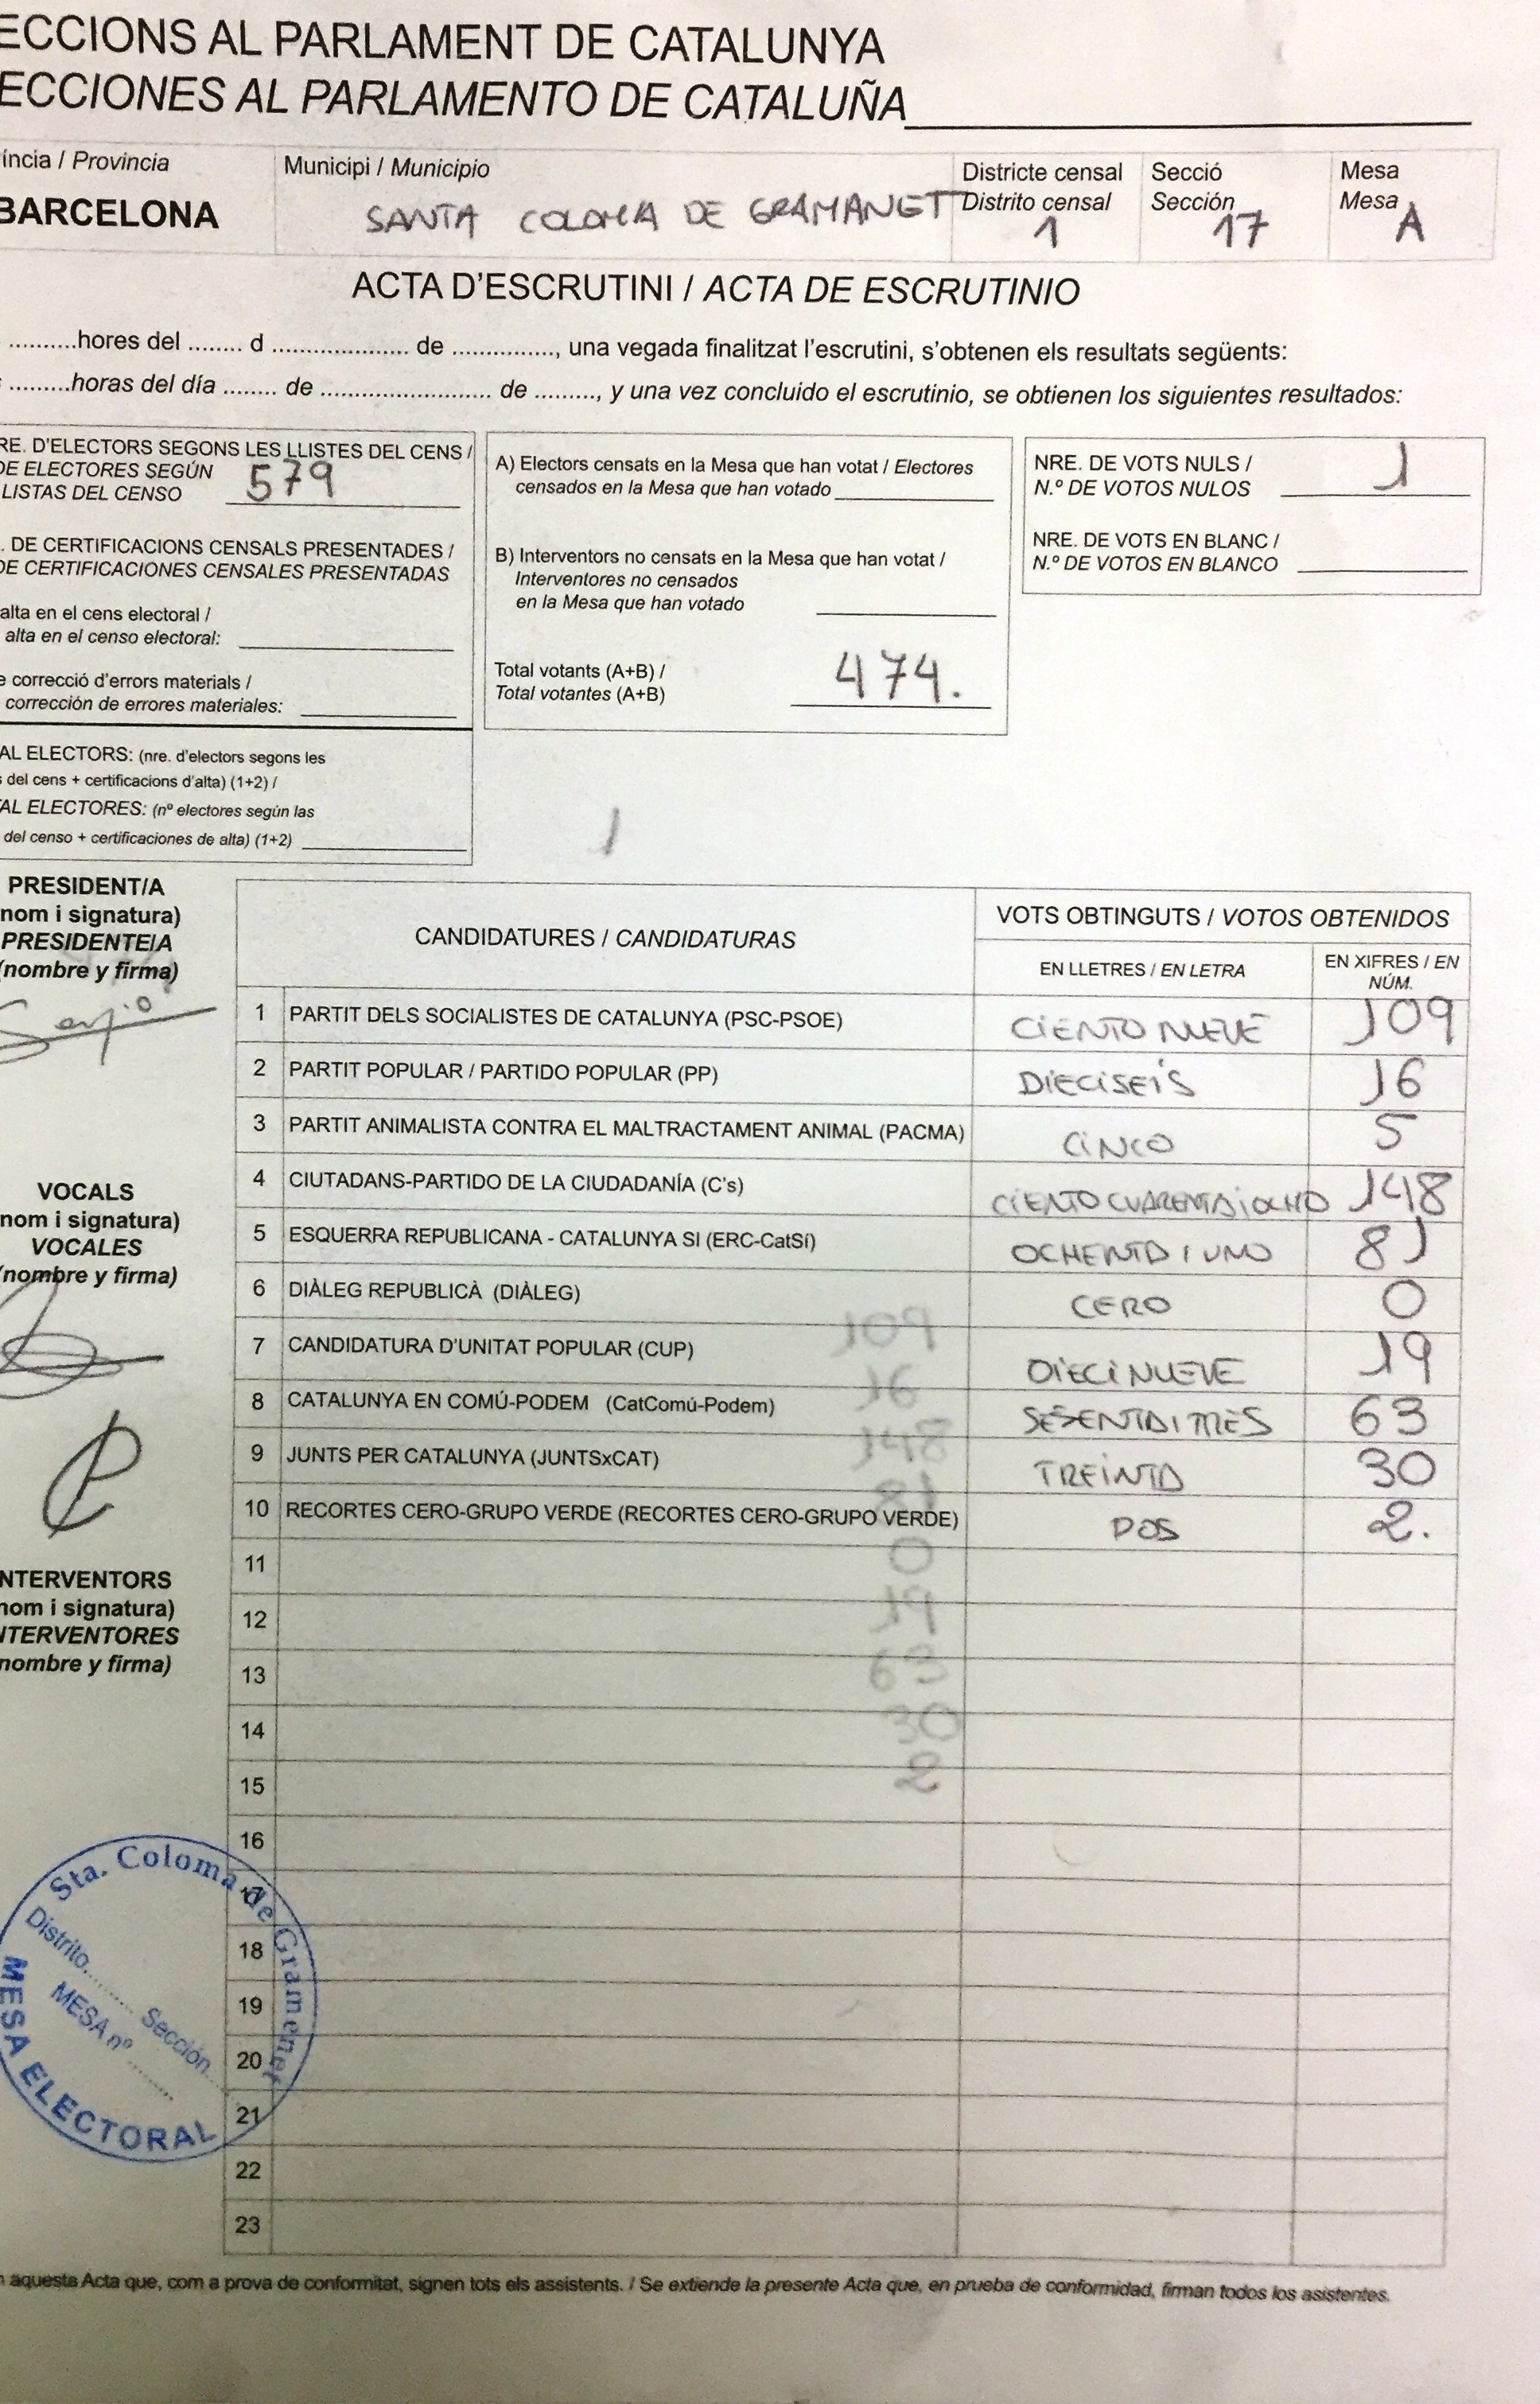 ECCIONS AL PARLAMENT DE CATALUNYA
ECCIONES AL PARLAMENTO DE CATALUÑA
íncia / Provincia
BARCELONA
Municipi / Municipio
SANTA COLOMA DE GRAMANET
Districte censal
Distrito censal
1
Secció
Sección
17
Mesa
Mesa
A
ACTA D'ESCRUTINI / ACTA DE ESCRUTINIO
..........hores del ........ d .................... de ..............., una vegada finalitzat l'escrutini, s'obtenen els resultats següents:
.........horas del día ........ de ......................... de ........., y una vez concluido el escrutinio, se obtienen los siguientes resultados:
RE. D'ELECTORS SEGONS LES LLISTES DEL CENS /
DE ELECTORES SEGÚN
LISTAS DEL CENSO 579
. DE CERTIFICACIONS CENSALS PRESENTADES /
DE CERTIFICACIONES CENSALES PRESENTADAS
alta en el cens electoral /
alta en el censo electoral:
e correcció d'errors materials /
corrección de errores materiales:
AL ELECTORS: (nre. d'electors segons les
s del cens + certificacions d'alta) (1+2) /
AL ELECTORES: (nº electores según las
del censo + certificaciones de alta) (1+2)
A) Electors censats en la Mesa que han votat / Electores
censados en la Mesa que han votado
B) Interventors no censats en la Mesa que han votat /
Interventores no censados
en la Mesa que han votado
Total votants (A+B) /
Total votantes (A+B) 474.
NRE. DE VOTS NULS /
N.º DE VOTOS NULOS 1
NRE. DE VOTS EN BLANC /
N.º DE VOTOS EN BLANCO
1
PRESIDENT/A
nom i signatura)
PRESIDENTE/A
(nombre y firma)
Sergio
VOCALS
nom i signatura)
VOCALES
(nombre y firma)
NTERVENTORS
nom i signatura)
NTERVENTORES
nombre y firma)
CANDIDATURES / CANDIDATURAS
VOTS OBTINGUTS / VOTOS OBTENIDOS
EN LLETRES / EN LETRA
EN XIFRES / EN
NÚM.
1 PARTIT DELS SOCIALISTES DE CATALUNYA (PSC-PSOE) CIENTO NUEVE 109
2 PARTIT POPULAR / PARTIDO POPULAR (PP) DIECISEIS 16
3 PARTIT ANIMALISTA CONTRA EL MALTRACTAMENT ANIMAL (PACMA) CINCO 5
4 CIUTADANS-PARTIDO DE LA CIUDADANÍA (C's) CIENTO CUARENTAIOCHO 148
5 ESQUERRA REPUBLICANA - CATALUNYA SI (ERC-CatSí) OCHENTA I UNO 81
6 DIÀLEG REPUBLICÀ (DIÀLEG) CERO 0
7 CANDIDATURA D'UNITAT POPULAR (CUP) DIECINUEVE 19
8 CATALUNYA EN COMÚ-PODEM (CatComú-Podem) SESENTAITRES 63
9 JUNTS PER CATALUNYA (JUNTSxCAT) TREINTA 30
10 RECORTES CERO-GRUPO VERDE (RECORTES CERO-GRUPO VERDE) DOS 2.
109
16
148
81
0
19
63
30
2
11
12
13
14
15
16
17
18
19
20
21
22
23
Sta. Coloma de Gramenet
Distrito........ Sección
MESA nº ........
MESA ELECTORAL
n aquesta Acta que, com a prova de conformitat, signen tots els assistents. / Se extiende la presente Acta que, en prueba de conformidad, firman todos los asistentes.